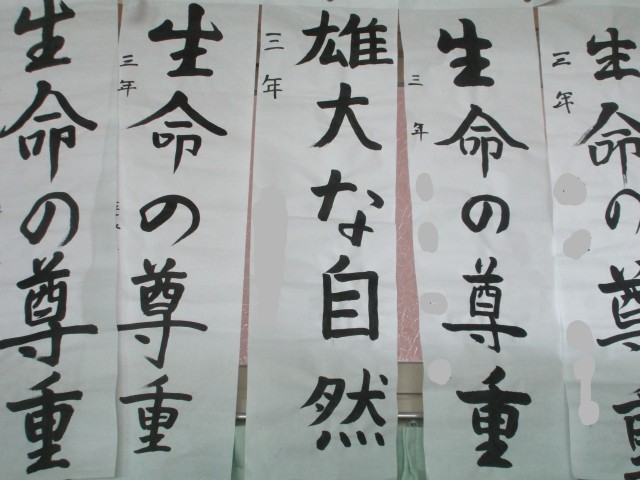 生命の尊重
三年
生命の尊重
三年
雄大な自然
三年
生命の尊重
三年
生命の尊重